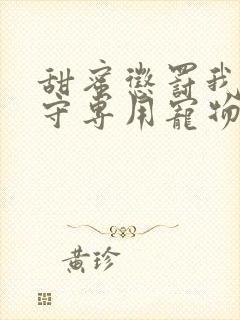 甜蜜懲罰我
守專用寵物
黃珍